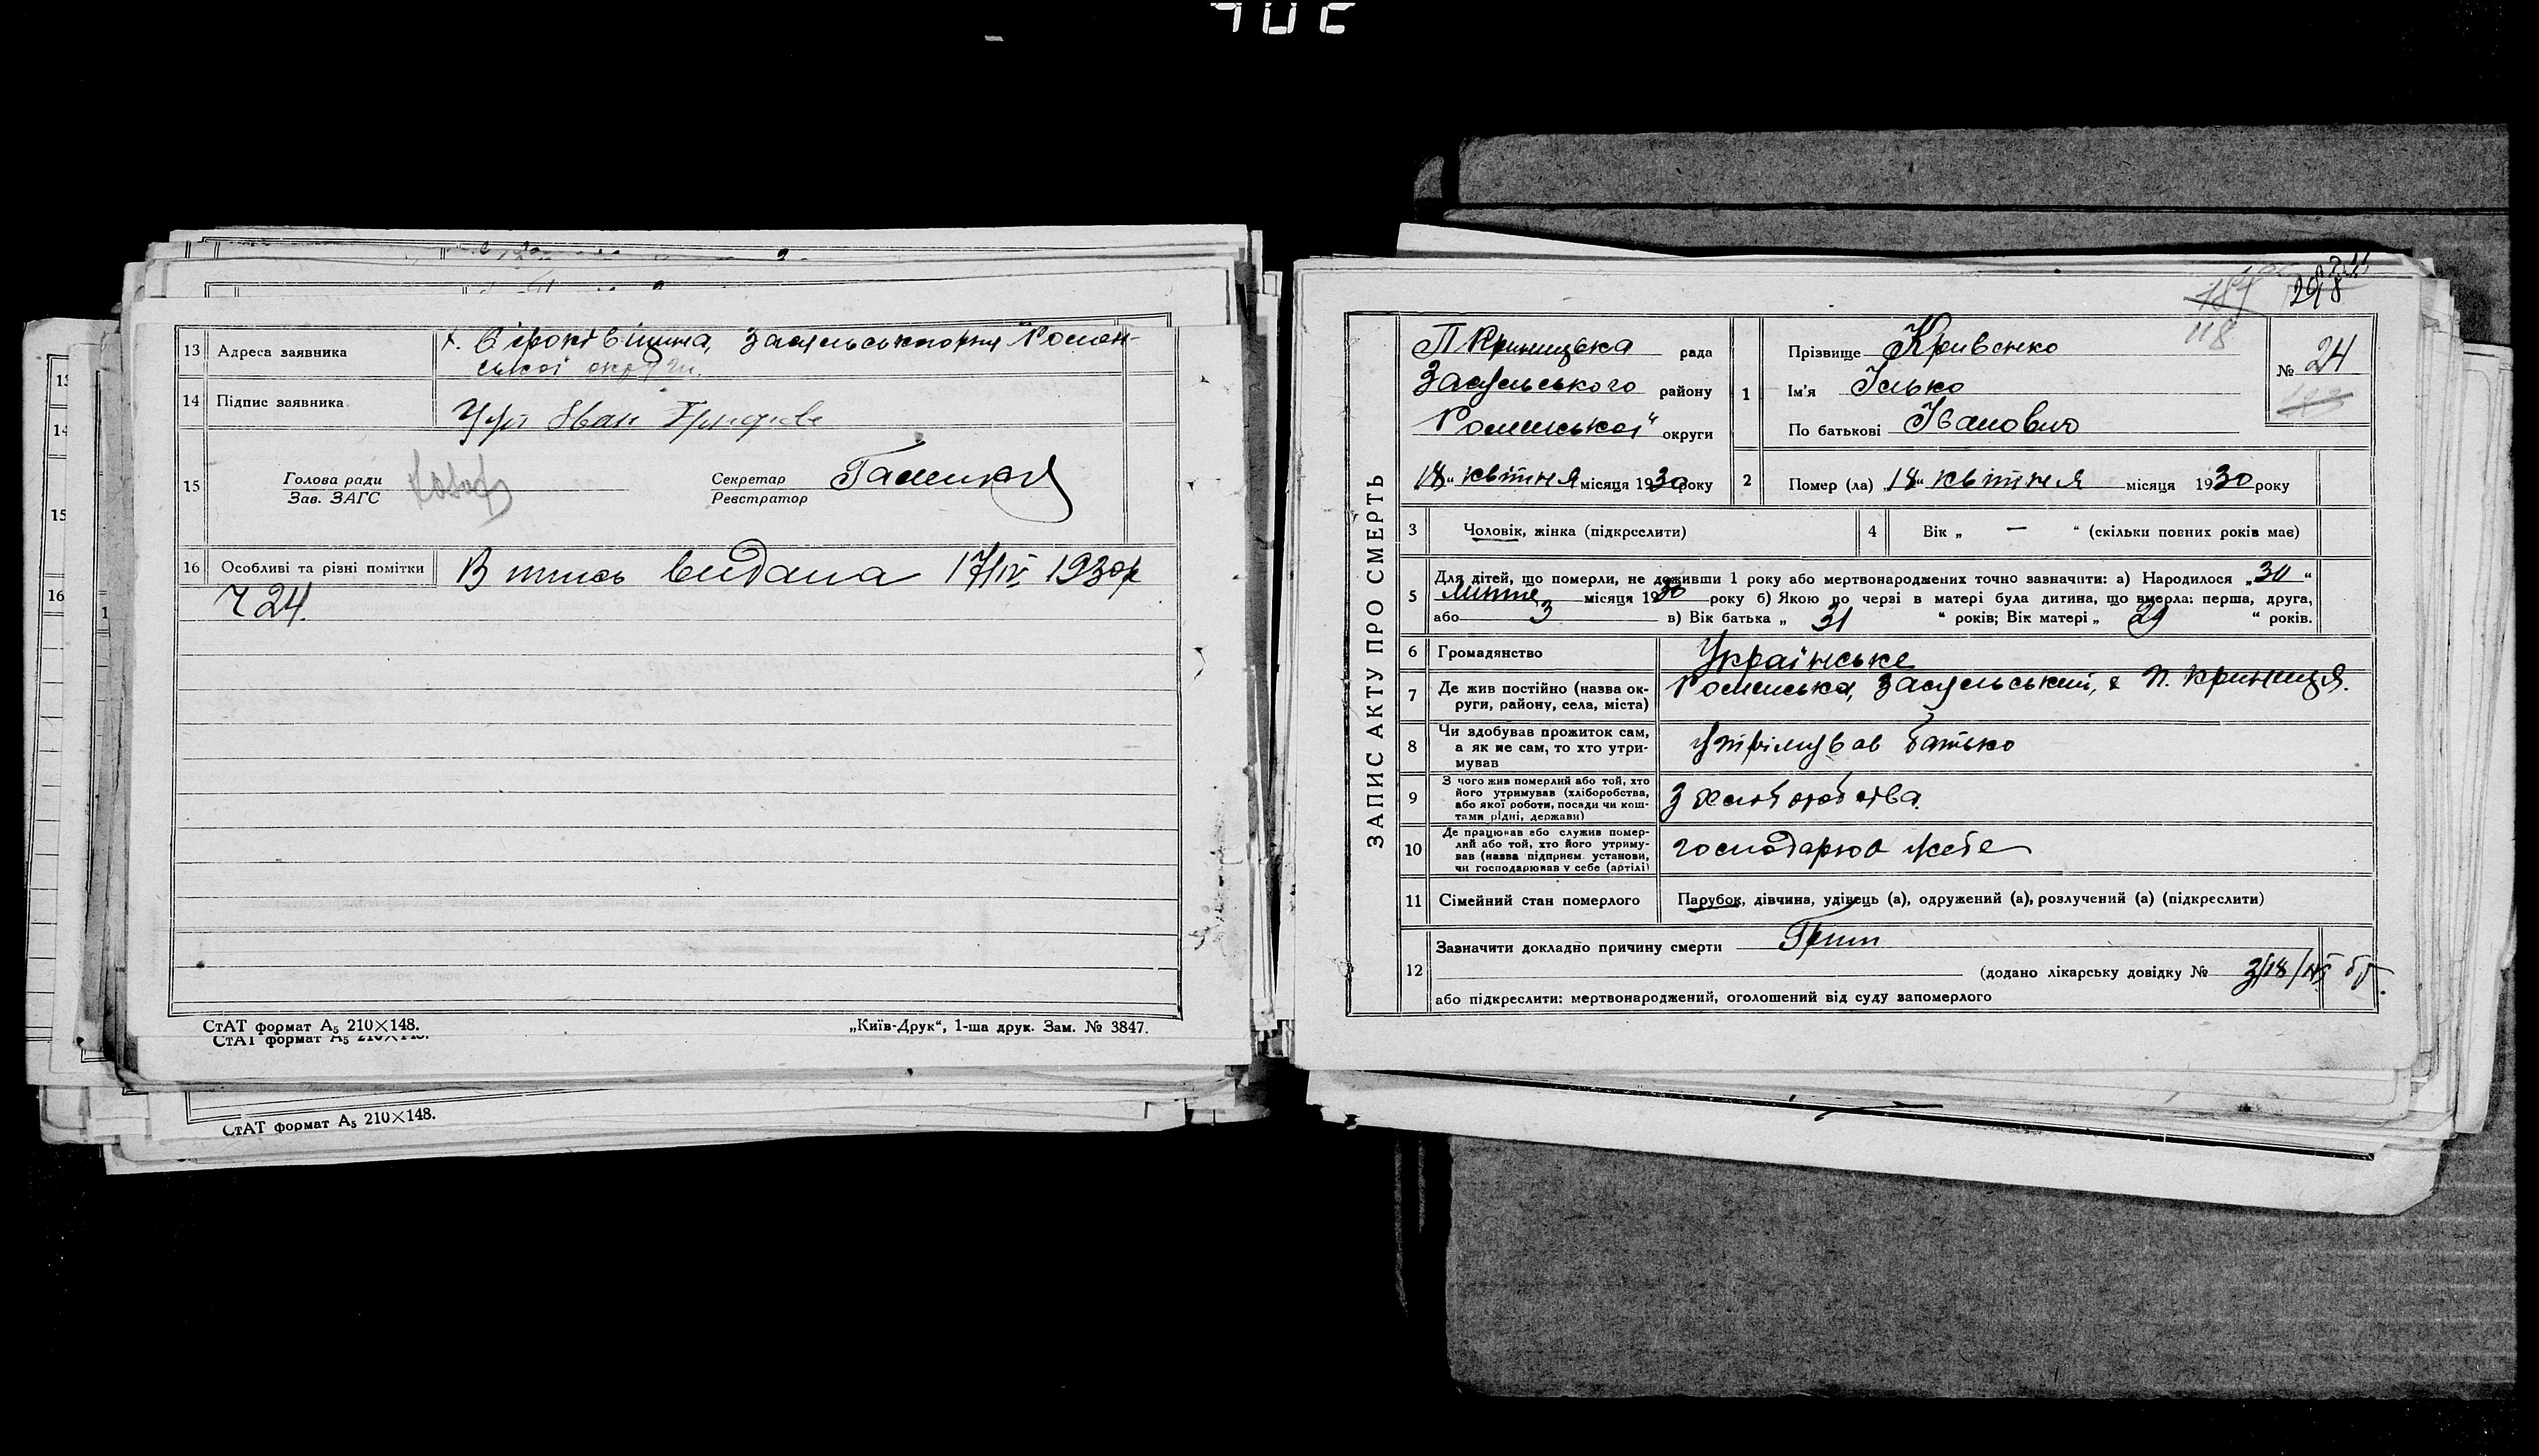 13 Адреса заявника
Засульського р-ну Ромен-
ської округи.
14 Підпис заявника
Іван
15 Голова ради
Зав. ЗАГС
Секретар
Реєстратор
16 Особливі та різні помітки
видана 17/IV 1930р
Ч 24.
СтАТ формат А₅ 210×148.
„Київ-Друк“, 1-ша друк. Зам. № 3847.
СтАТ формат А₅ 210×148.
СтАТ формат А₅ 210×148.
298
118
ЗАПИС АКТУ ПРО СМЕРТЬ
П Криницька рада
Засульського району
Роменської округи
„18“ квітня місяця 1930 року
1 Прізвище Кривенко
Ім'я Ілько
По батькові Іванович
№ 24
2 Помер (ла) „18“ квітня місяця 1930 року
3 Чоловік, жінка (підкреслити)
4 Вік „ — “ (скільки повних років має)
5 Для дітей, що померли, не доживши 1 року або мертвонароджених точно зазначити: а) Народилося „30“
місяця 1930 року б) Якою по черзі в матері була дитина, що вмерла: перша, друга,
або 3 в) Вік батька „ 31 “ років; Вік матері „ 29 “ років.
6 Громадянство Українське
7 Де жив постійно (назва ок-
руги, району, села, міста)
Роменська, Засульський, П. Криниця.
8 Чи здобував прожиток сам,
а як не сам, то хто утри-
мував
утрімував батько
9 З чого жив померлий або той, хто
його утримував (хліборобства,
або якої роботи, посади чи кош-
тами рідні, держави)
З хліборобства
10 Де працював або служив помер-
лий або той, хто його утриму-
вав (назва підприєм. установи,
чи господарював у себе (артілі)
господарював у себе
11 Сімейний стан померлого
Парубок, дівчина, удівець (а), одружений (а), розлучений (а) (підкреслити)
12 Зазначити докладно причину смерти Грип
(додано лікарську довідку №
або підкреслити: мертвонароджений, оголошений від суду запомерлого